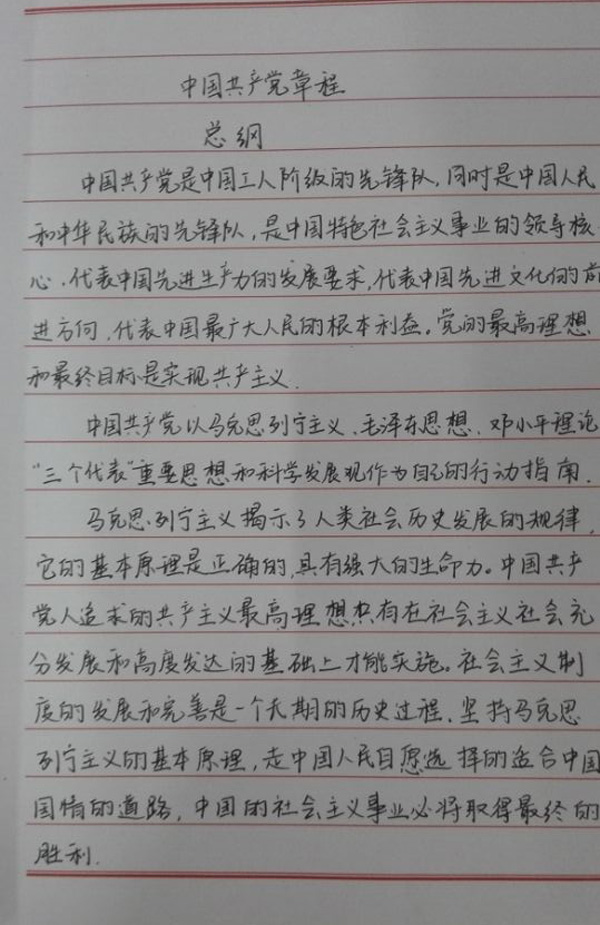 中国共产党章程
总纲
中国共产党是中国工人阶级的先锋队，同时是中国人民
和中华民族的先锋队，是中国特色社会主义事业的领导核
心，代表中国先进生产力的发展要求，代表中国先进文化的前
进方向，代表中国最广大人民的根本利益。党的最高理想
和最终目标是实现共产主义.
中国共产党以马克思列宁主义、毛泽东思想、邓小平理论
“三个代表”重要思想和科学发展观作为自己的行动指南.
马克思列宁主义揭示了人类社会历史发展的规律，
它的基本原理是正确的，具有强大的生命力。中国共产
党人追求的共产主义最高理想只有在社会主义社会充
分发展和高度发达的基础上才能实施。社会主义制
度的发展和完善是一个长期的历史过程. 坚持马克思
列宁主义的基本原理，走中国人民自愿选择的适合中国
国情的道路，中国的社会主义事业必将取得最终的
胜利.